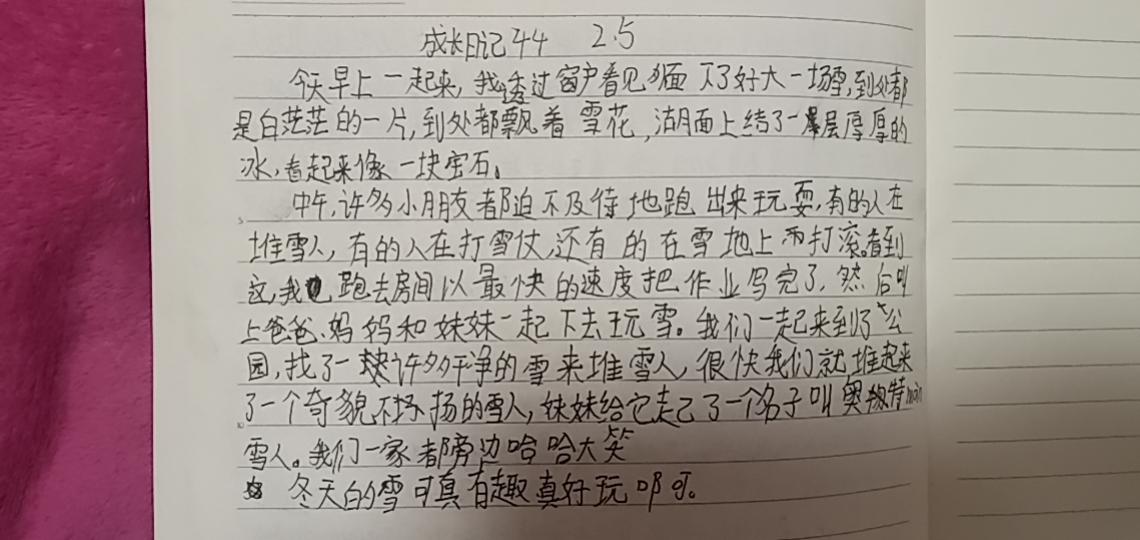 成长日记44 2.5
今天早上一起来,我透过窗户看见外面下了好大一场雪,到处都
是白茫茫的一片,到处都飘着雪花,湖面上结了一层厚厚的
冰,看起来像一块宝石。
中午,许多小朋友都迫不及待地跑出来玩耍,有的人在
堆雪人,有的人在打雪仗,还有的在雪地上打滚。看到
这,我跑去房间以最快的速度把作业写完了,然后叫
上爸爸、妈妈和妹妹一起下去玩雪。我们一起来到了公
园,找了许多干净的雪来堆雪人,很快我们就堆起来
了一个奇貌不扬的雪人,妹妹给它起了一个名子叫奥特man
雪人。我们一家都旁边哈哈大笑
冬天的雪可真有趣真好玩啊。